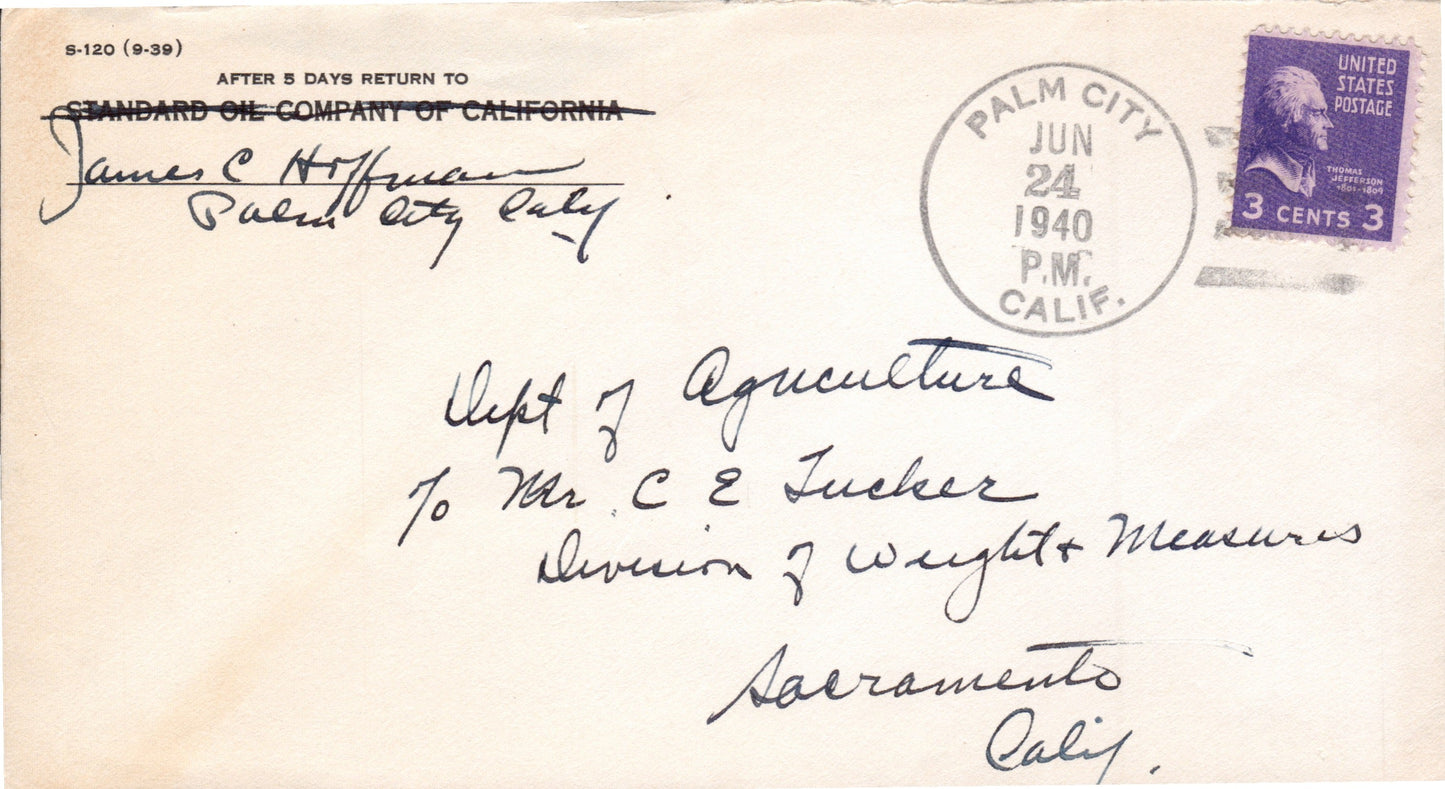 S-120 (9-39)
AFTER 5 DAYS RETURN TO
STANDARD OIL COMPANY OF CALIFORNIA
James C Hoffman
Palm City Calif
PALM CITY
JUN
24
1940
P.M.
CALIF.
UNITED
STATES
POSTAGE
THOMAS
JEFFERSON
1801-1809
3 CENTS 3
Dept of Agriculture
% Mr. C E Tucker
Division of Weight & Measures
Sacramento
Calif.